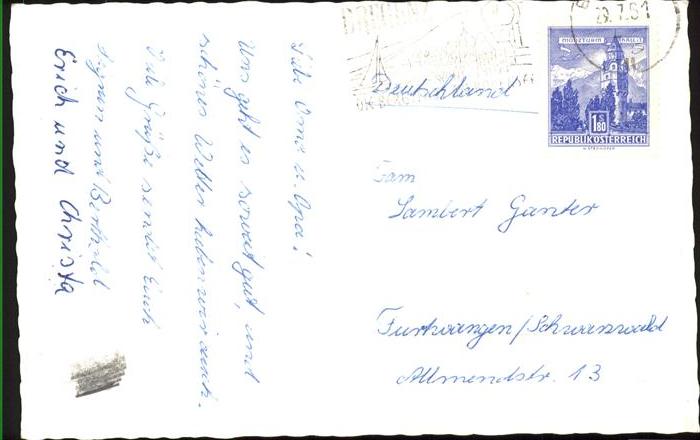 Liebe Oma u. Opa!
Uns geht es soweit gut, und
schönes Wetter haben wir auch.
Viele Grüße sendet Euch
und Berthold
Erich und Christa
BREGENZ
29.7.61
MÜNZTURM HALL i. T.
1.80
REPUBLIK ÖSTERREICH
Deutschland
Fam
Lambert Ganter
Furtwangen/Schwarzwald
Allmendstr. 13